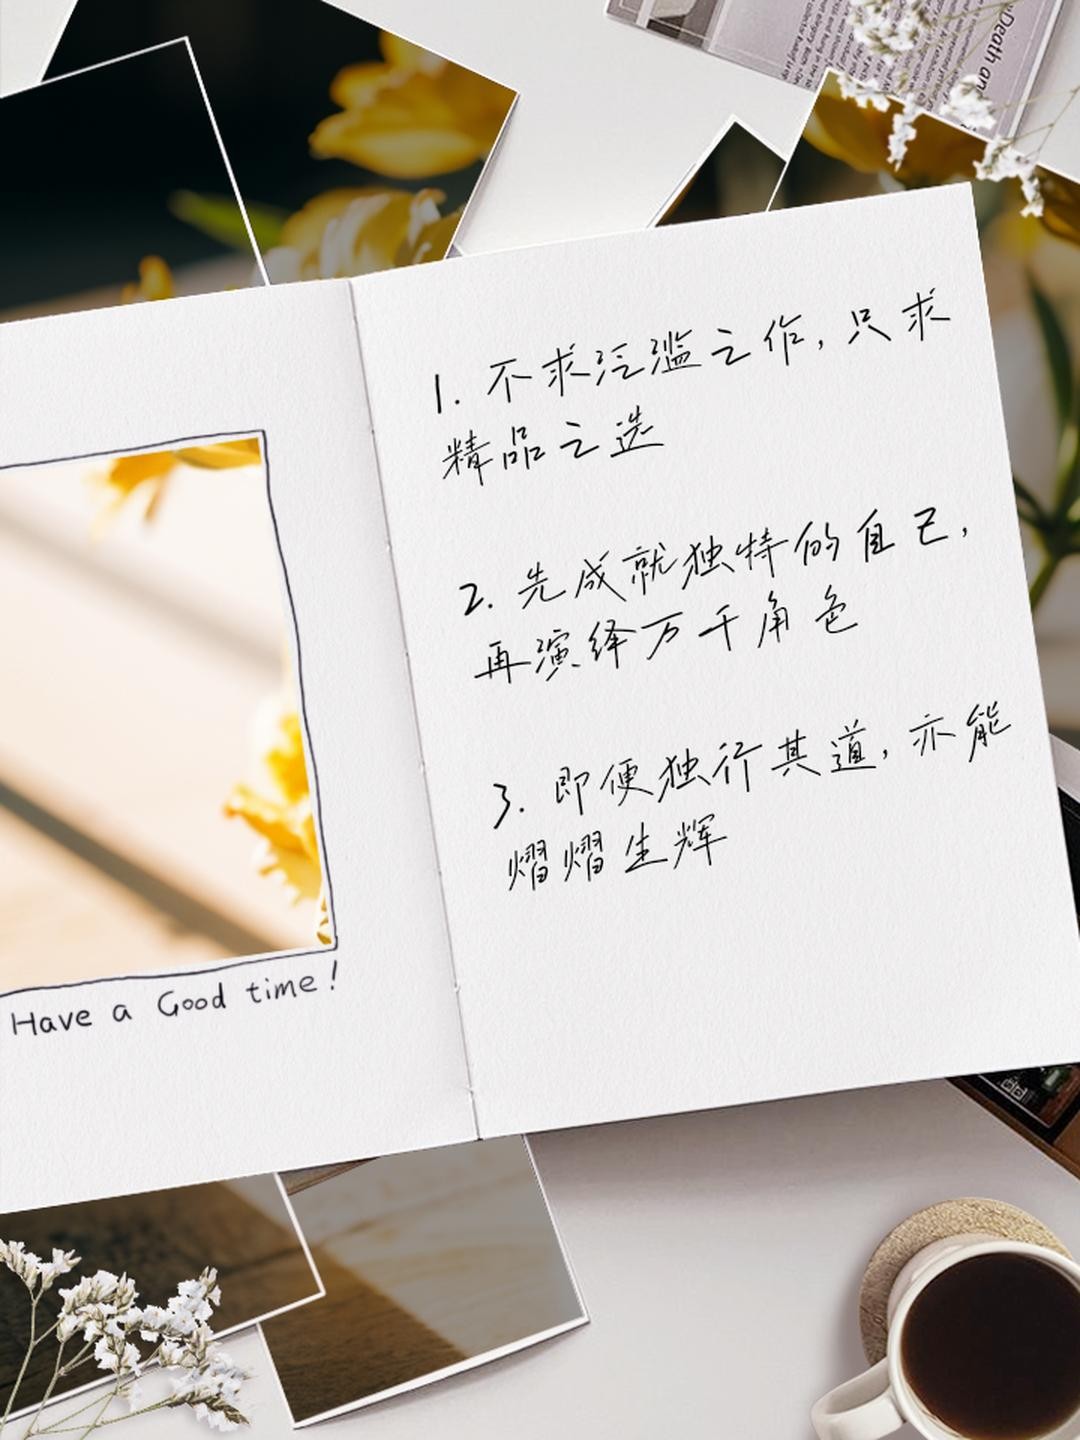 Death an
1. 不求泛滥之作，只求
精品之选
2. 先成就独特的自己，
再演绎万千角色
3. 即便独行其道，亦能
熠熠生辉
Have a Good time!